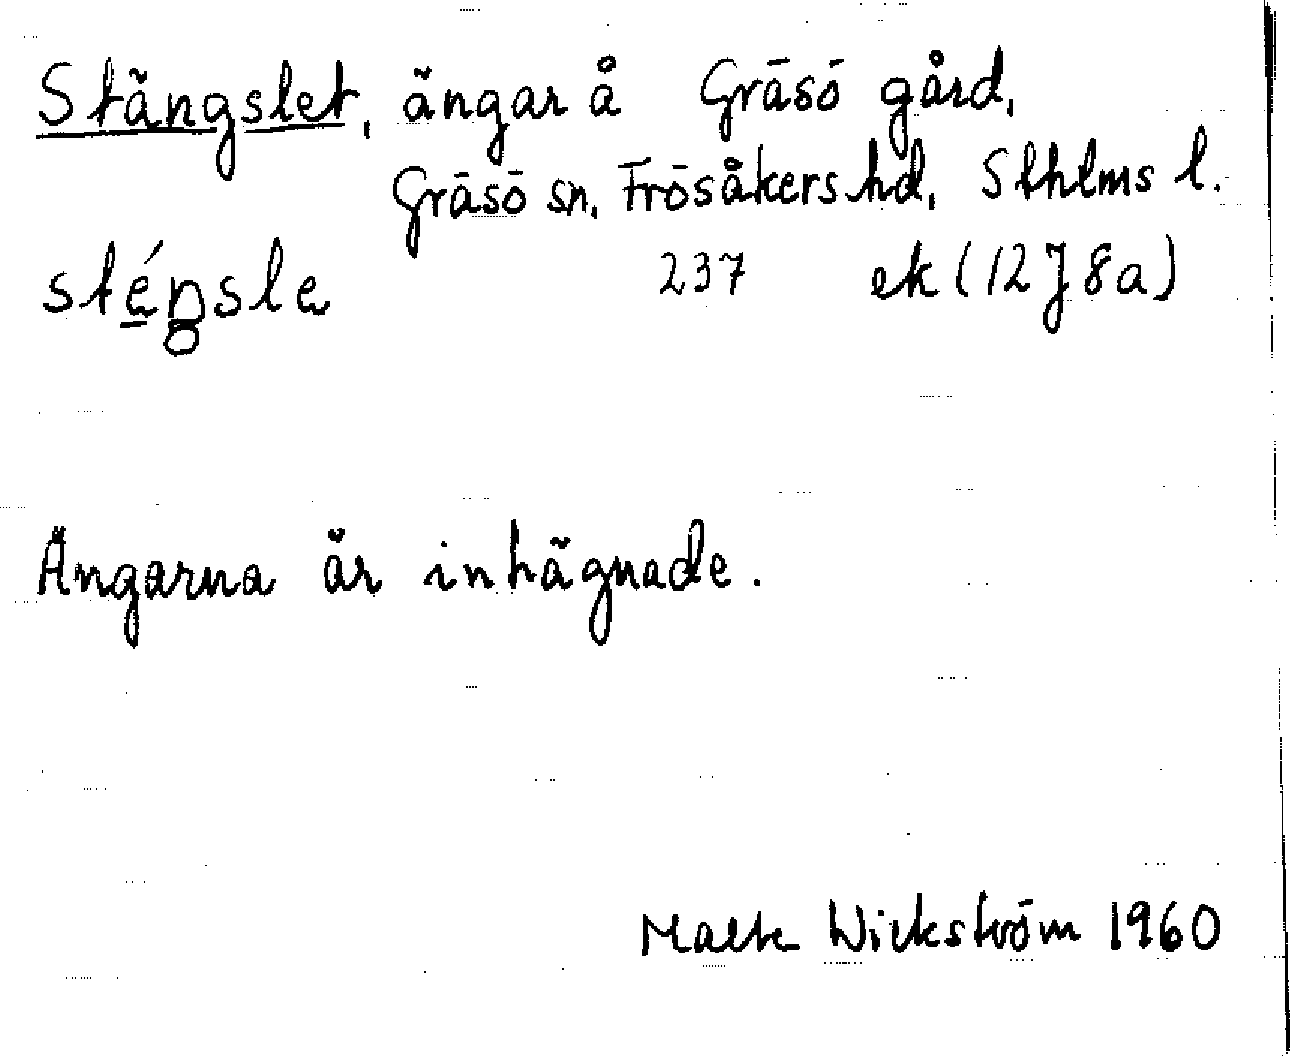 Stängslet, ängar å Gräsö gård,
Gräsö sn, Frösåkers hd, Sthlms l.
sténsle 237 ek (12 J 8a)
Ängarna är inhägnade.
Malte Wickström 1960